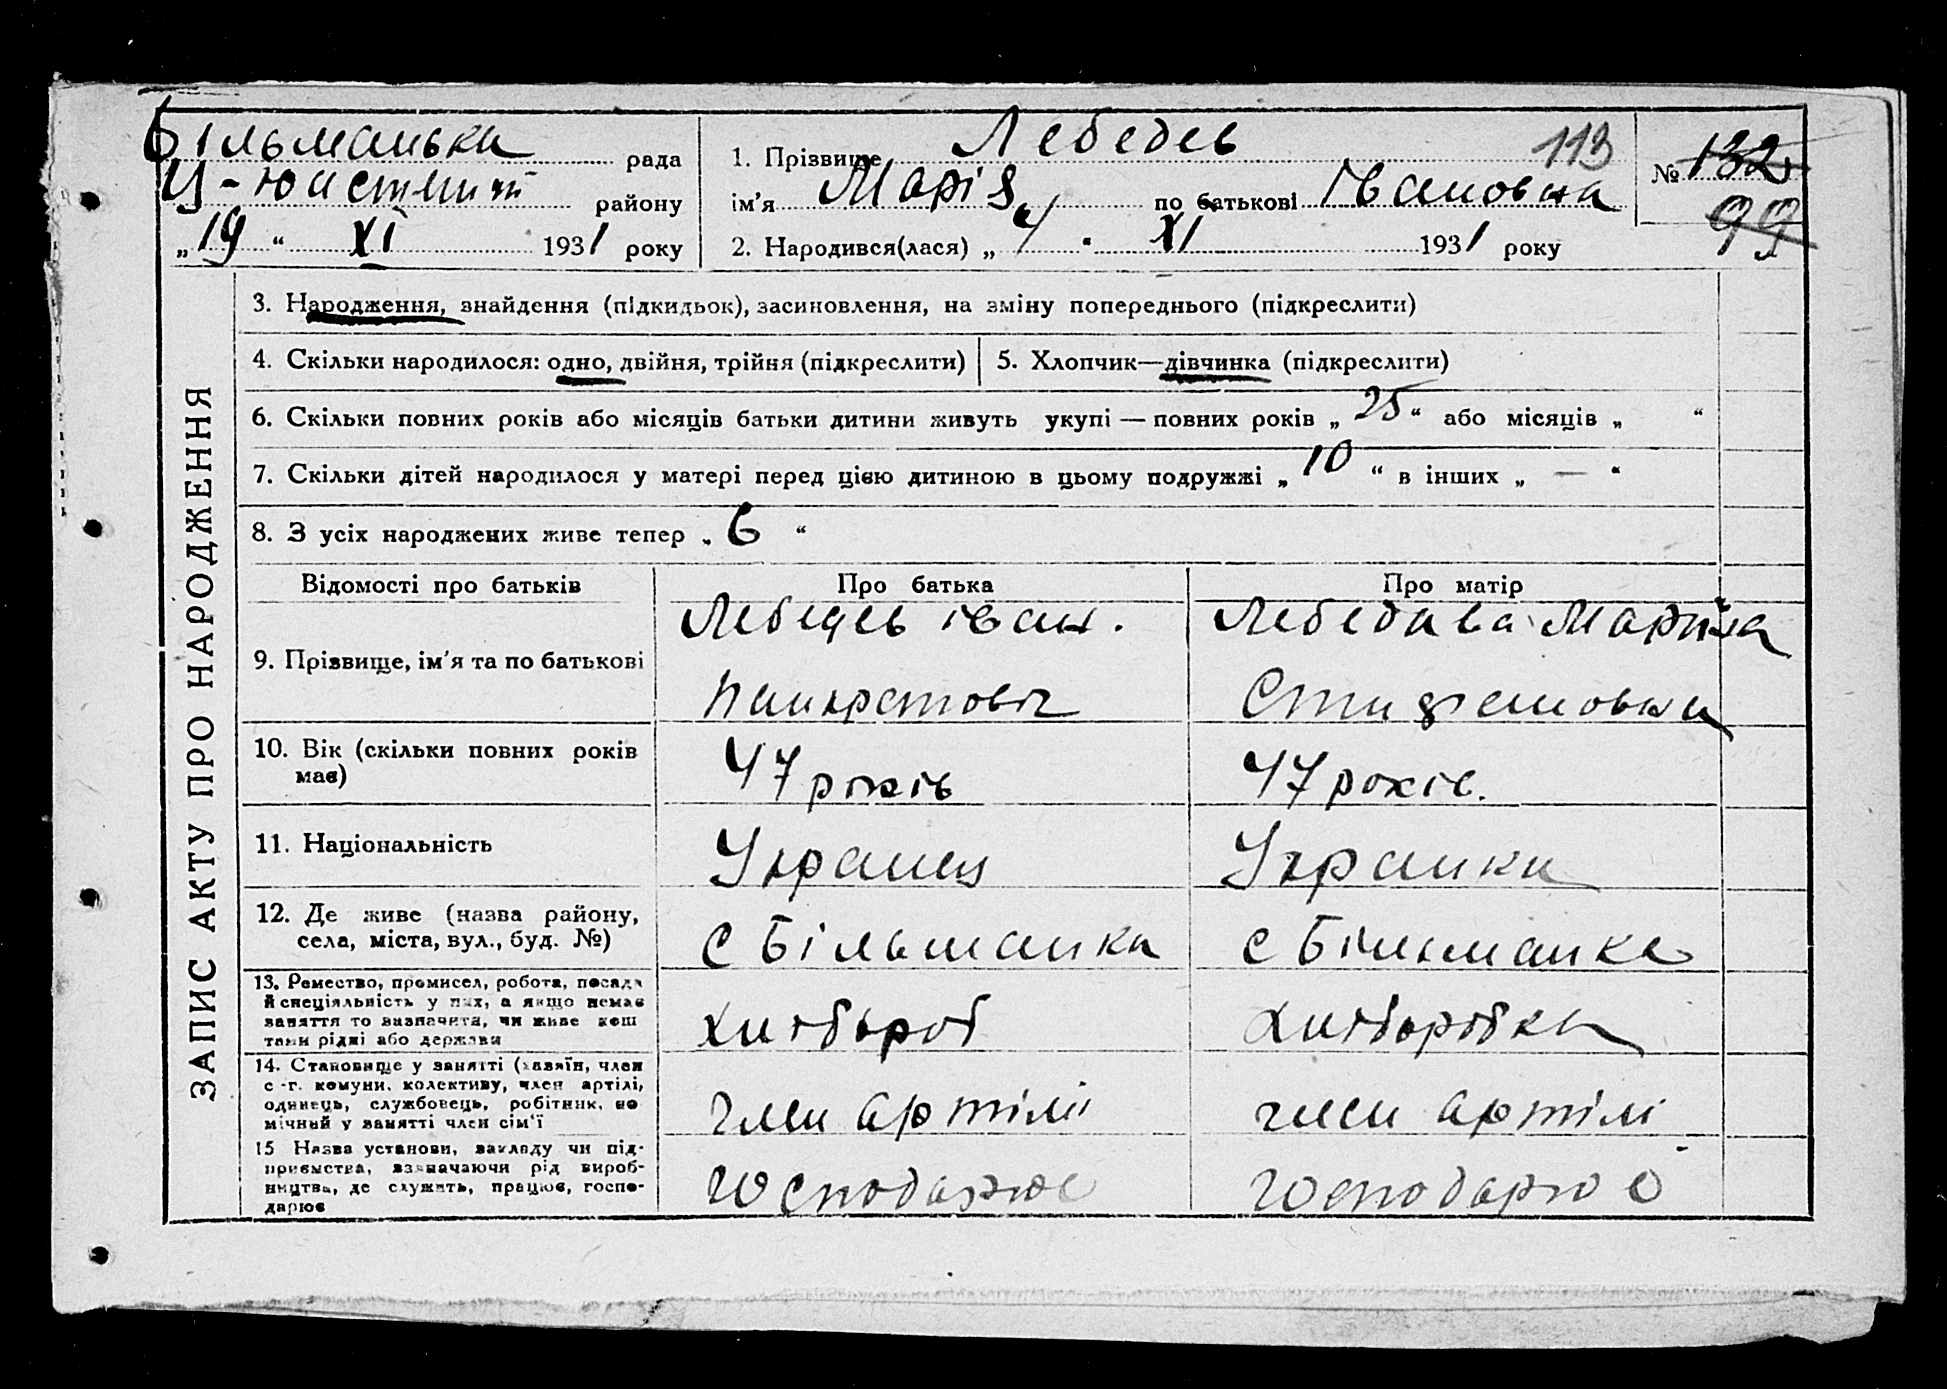 Більманька рада
Ц-Юистиит району
„19“ XI 1931 року
1. Прізвище Лебедев 113
ім'я Марія по батькові Івановна
2. Народився(лася) „4“ XI 1931 року
№ 132
99
ЗАПИС АКТУ ПРО НАРОДЖЕННЯ
3. Народження, знайдення (підкидьок), засиновлення, на зміну попереднього (підкреслити)
4. Скільки народилося: одно, двійня, трійня (підкреслити)
5. Хлопчик—дівчинка (підкреслити)
6. Скільки повних років або місяців батьки дитини живуть укупі — повних років „25“ або місяців „ “
7. Скільки дітей народилося у матері перед цією дитиною в цьому подружжі „10“ в інших „—“
8. З усіх народжених живе тепер „6“
Відомості про батьків
Про батька
Про матір
9. Прізвище, ім'я та по батькові
Лебедев Іван.
Панкратовіч
Лебедава Марина
10. Вік (скільки повних років
має)
47 років
47 років.
11. Національність
Украинец
Украинка
12. Де живе (назва району,
села, міста, вул., буд. №)
с Більманка
с Більманка
13. Ремество, промисел, робота, посада
й спеціяльність у них, а якщо немає
заняття то зазначити, чи живе кош
тами рідні або держави
хлібороб
хліборобка
14. Становище у занятті (хазяїн, член
с.-г. комуни, колективу, член артілі,
одинець, службовець, робітник, по
мічний у занятті член сім'ї
член артілі
член артілі
15 Назва установи, закладу чи під-
приємства, зазначаючи рід вироб-
ництва, де служить, працює, госпо-
дарює
господарює
господарює